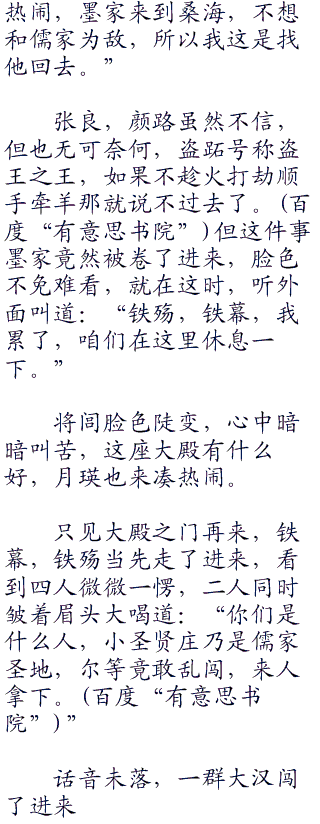 热闹，墨家来到桑海，不想
和儒家为敌，所以我这是找
他回去。”
张良，颜路虽然不信，
但也无可奈何，盗跖号称盗
王之王，如果不趁火打劫顺
手牵羊那就说不过去了。(百
度“有意思书院”)但这件事
墨家竟然被卷了进来，脸色
不免难看，就在这时，听外
面叫道：“铁殇，铁幕，我
累了，咱们在这里休息一
下。”
将闾脸色陡变，心中暗
暗叫苦，这座大殿有什么
好，月瑛也来凑热闹。
只见大殿之门再来，铁
幕，铁殇当先走了进来，看
到四人微微一愣，二人同时
皱着眉头大喝道：“你们是
什么人，小圣贤庄乃是儒家
圣地，尔等竟敢乱闯，来人
拿下。(百度“有意思书
院”)”
话音未落，一群大汉闯
了进来